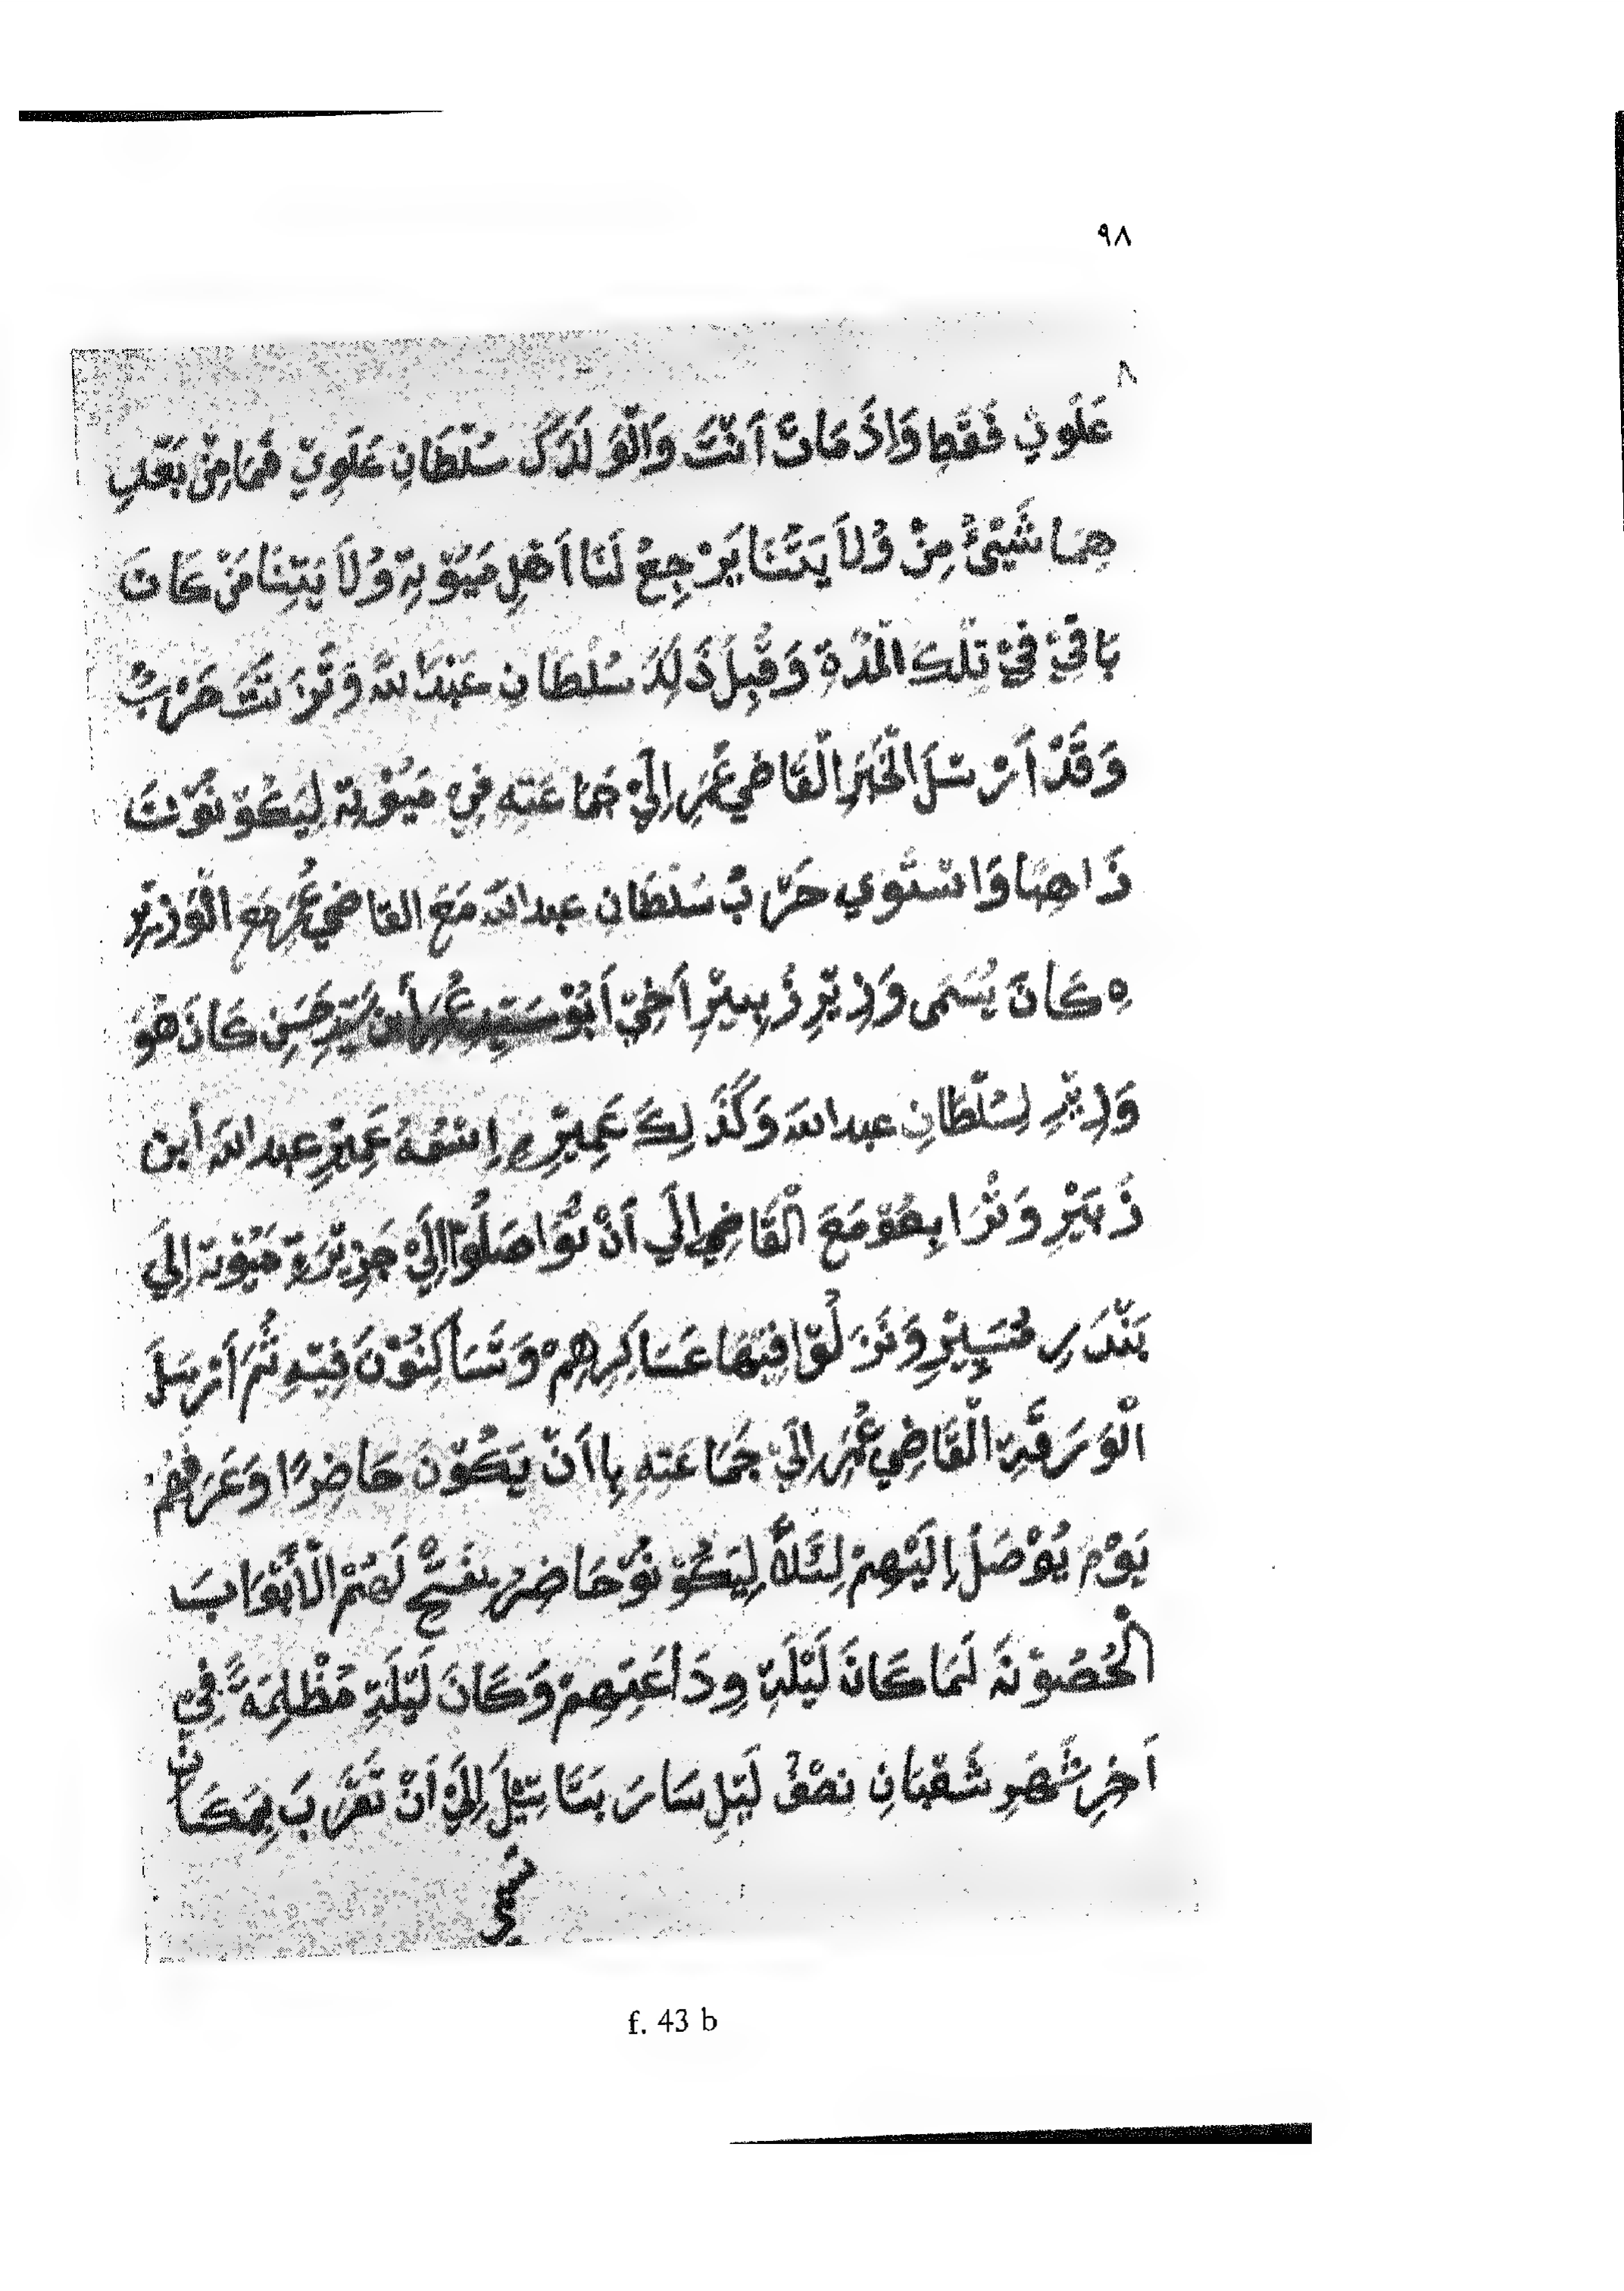 ٩٨
٨
عَلَوِيْ فَقَطِ وَاِذَ مَاتَ اَنْتَ وَالْوَلَدَكَ سُلْطَانِ عَلَوِيْ فَمَا مِنْ بَعْدِ
هِمَا شَيْئُ مِنْ وُلاَ يَتُنَا يَرْجِعُ لَنَا اَهْلِ مَيُوْتِهْ وُلاَ يَتِنَا مَنْ كَانَ
بَاقِيْ فِيْ تِلْكَ الْمُدَّةْ وَقُبِلَ ذَلِكَ سُلْطَانِ عَبْدَاللهْ وَنَزَلَتَ حَرْبُ
وَقَدْ اَرْسَلَ الْخَبَرِ الْقَاضِي عُمَرِ اِلَيْ جَمَاعَتِهِ فِيْ مَيُوْتِهْ لِيَكُوْنُوْتَ
ذَاهِبًا وَاسْتَوِي حَرْبُ سُلْطَانِ عبدالله مَعَ القاضي عُمَرِ مَعَ الْوَزِيْرِ
هِ كَانَ يُسَمَى وَزِيْرِ زُبِيْرِ اَخِيْ اَبُوْ سَيِّدِ عُمَرِ أبن سَيِّدِ حَسَنِ كَانَ هُوَ
وَزِيْرِ لِسُلْطَانِ عبدالله وَكَذَ لِكَ عَمِيْرِهِ اِسْمُهُ عَمِيْرِ عبدالله أبن
زُبَيْرِ وَتْرَابِعُوْ مَعَ الْقَاضِي اِلَي اَنْ تُوَاصَلُوْا اِلَيْ جَزِيْرَةِ مَيُوْتَهْ اِلَي
بَنْدَرِ مُسَبِيْرِ وَنَزَلُوْا فِيْهَا عَسَاكِرِهِمْ وَتَسَاكِنُوْنَ فِيْهِ ثُمَ اَرْسَلَ
الْوَرَقَةِ الْقَاضِي عُمَرِ اِلَيْ جَمَاعَتِهِ بِا اَنْ يَكُوْنَ حَاضِرًا وَعَرَفَهُمْ
يَوْمِ يُوْصَلُ اِلَيْهِمْ لِئَلاَّ لِيَكُوْنُوْ حَاضِرُ يفتح لَهُمْ الْاَبْوَابَ
الْحُصُوْنَهْ لَمَا كَانَ لَيْلَةِ وِدَاعَتِهِمْ وَكَانَ لَيْلَةِ مُظْلِمَةً فِيْ
اَخِرِ شَهْرِ شَعْبَانِ نِصْفُ لَيْلِ سَارَ بَتَاتِيْلَ اِلَيْ اَنْ تَقَرَّبَ بِمَكَانِ
f. 43 b